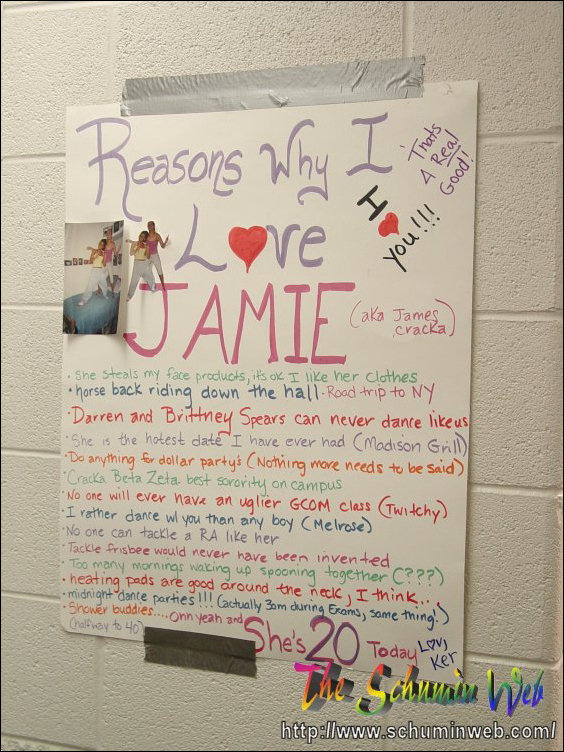 Reasons Why I
Love
JAMIE
(aka James, cracka)
I ♥ you!!!
Thats
A Real
Good!
• She steals my face products, it's ok I like her clothes
• horse back riding down the hall • Road trip to NY
• Darren and Brittney Spears can never dance like us
• She is the hotest date I have ever had (Madison Grill)
• Do anything for dollar party's (Nothing more needs to be said)
• Cracka Beta Zeta best sorority on campus
• No one will ever have an uglier GCOM class (Twitchy)
• I rather dance w/ you than any boy (Melrose)
• No one can tackle a RA like her
• Tackle frisbee would never have been invented
• Too many mornings waking up spooning together (???)
• heating pads are good around the neck, I think...
• midnight dance parties!!! (actually 3am during Exams, same thing!)
• Shower buddies.... ohh yeah and She's 20 Today
(halfway to 40)
Love,
Ker
The Schumin Web
http://www.schuminweb.com/